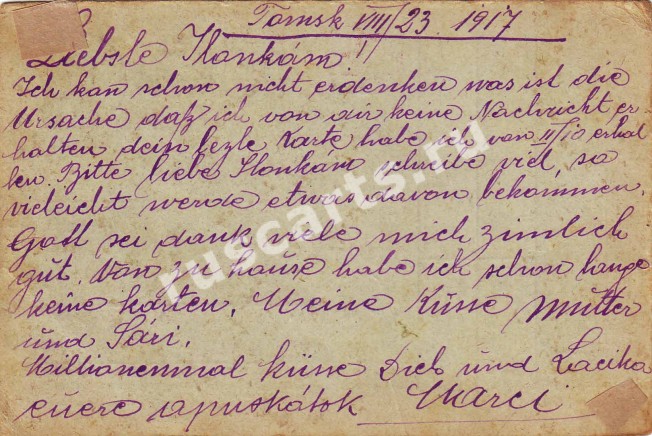 Tomsk VIII/23. 1917
Liebste Ilonkám!
Ich kan schon nicht erdenken was ist die
Ursache daß ich von dir keine Nachricht er-
halten dein lezte Karte habe ich von II/10 erhal
ten. Bitte liebe Ilonkám schreibe viel, so
vieleicht werde etwas davon bekommen.
Gott sei dank viele mich zimlich
gut. Von zu hause habe ich schon lange
keine karten. Meine Küsse Mutter
und Sári.
Millionenmal küsse Dich und Lacika
euere apuskátok Marci
ruscarts.ru